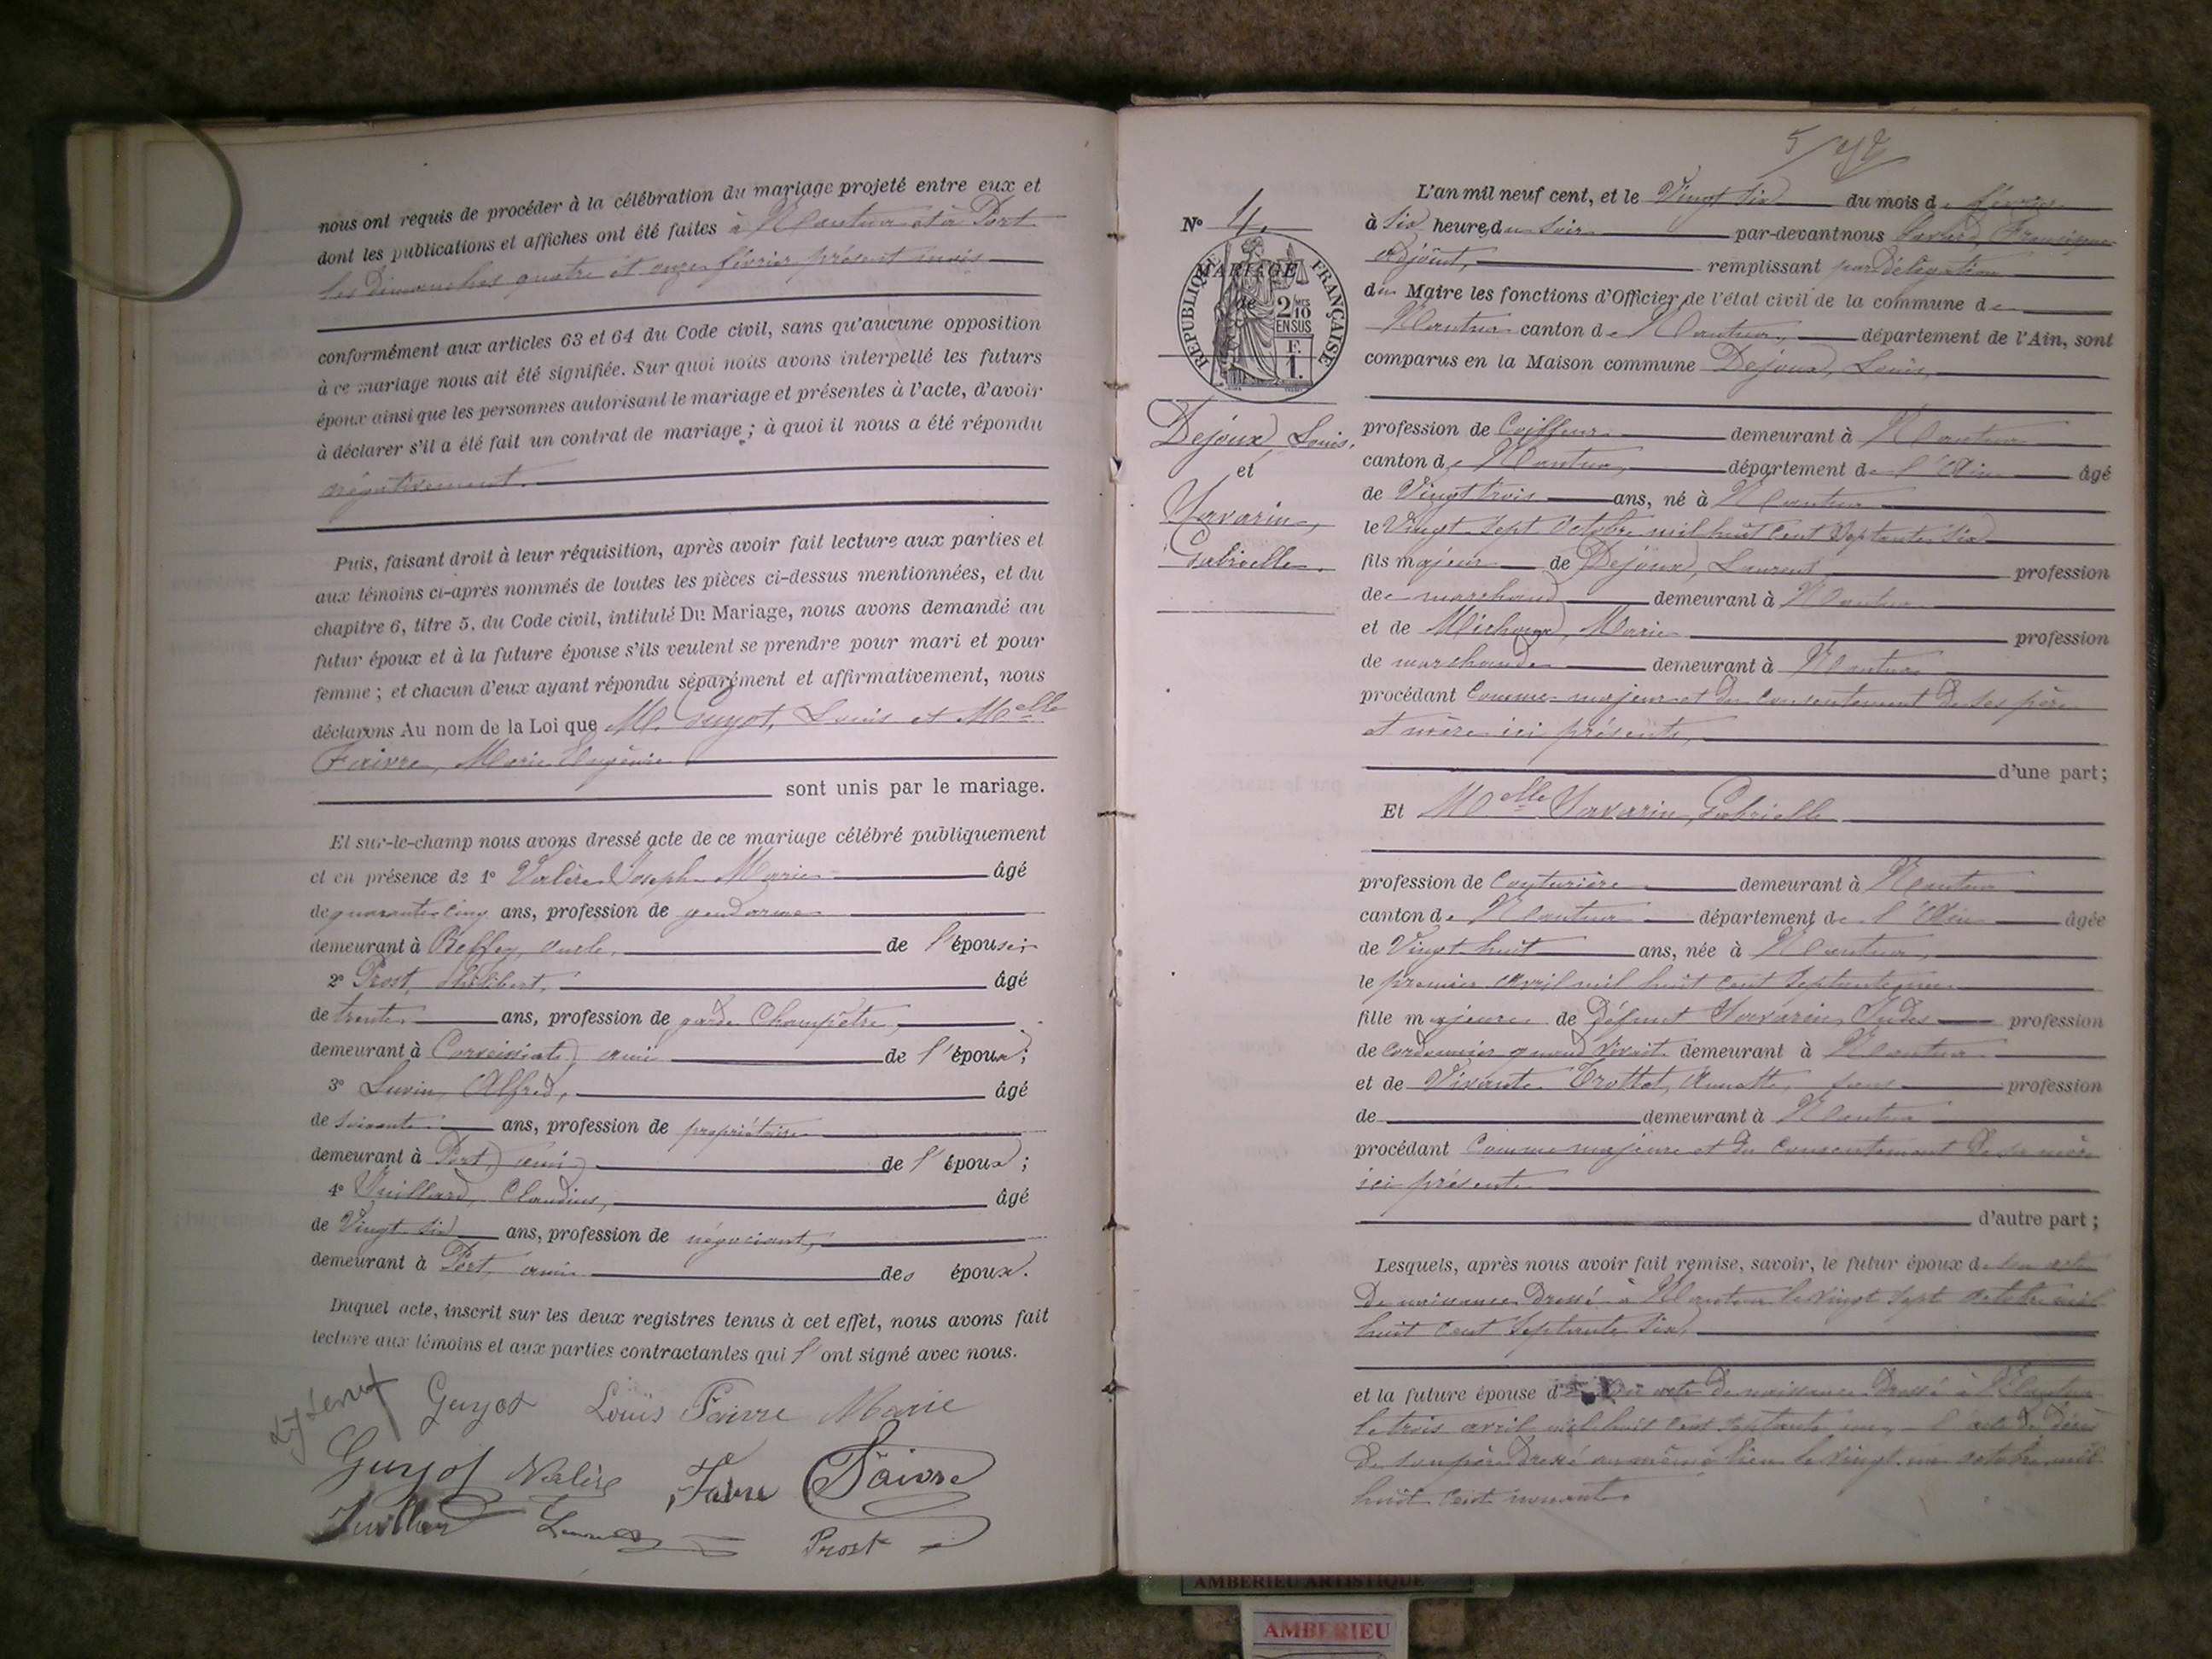 nous ont requis de procéder à la célébration du mariage projeté entre eux et
dont les publications et affiches ont été faites à Nantua et à Port
les Dimanches quatre et onze février présent mois
conformément aux articles 63 et 64 du Code civil, sans qu'aucune opposition
à ce mariage nous ait été signifiée. Sur quoi nous avons interpellé les futurs
époux ainsi que les personnes autorisant le mariage et présentes à l'acte, d'avoir
à déclarer s'il a été fait un contrat de mariage ; à quoi il nous a été répondu
négativement.
Puis, faisant droit à leur réquisition, après avoir fait lecture aux parties et
aux témoins ci-après nommés de toutes les pièces ci-dessus mentionnées, et du
chapitre 6, titre 5, du Code civil, intitulé Du Mariage, nous avons demandé au
futur époux et à la future épouse s'ils veulent se prendre pour mari et pour
femme ; et chacun d'eux ayant répondu séparément et affirmativement, nous
déclarons Au nom de la Loi que M. Guyot, Louis et Melle
Faivre, Marie Eugénie
sont unis par le mariage.
Et sur-le-champ nous avons dressé acte de ce mariage célébré publiquement
et en présence de 1° Joseph Marie âgé
de quarante cinq ans, profession de gendarme
demeurant à oncle, de l'épouse ;
2° Prost, Philibert, âgé
de trente ans, profession de garde Champêtre,
demeurant à ami de l'époux ;
3° Alfred, âgé
de soixante ans, profession de propriétaire
demeurant à Port, ami de l'époux ;
4° Juillard, Claudius, âgé
de Vingt six ans, profession de négociant,
demeurant à Port, ami des époux.
Duquel acte, inscrit sur les deux registres tenus à cet effet, nous avons fait
lecture aux témoins et aux parties contractantes qui l'ont signé avec nous.
Guyot Louis Faivre Marie
Guyot Faivre Faivre
Juillard Prost
5
N° 4.
RÉPUBLIQUE FRANÇAISE
MARIAGE
de
2 MES
10
EN SUS
F.
1.
Dejoux, Louis,
et
Savarin,
Gabrielle.
L'an mil neuf cent, et le Vingt six du mois de février
à six heures du soir par-devant nous Francisque
adjoint, remplissant par Délégation
du Maire les fonctions d'Officier de l'état civil de la commune de
Nantua canton de Nantua, département de l'Ain, sont
comparus en la Maison commune Dejoux, Louis,
profession de Coiffeur demeurant à Nantua
canton de Nantua, département de l'Ain âgé
de Vingt trois ans, né à Nantua
le Vingt sept octobre mil huit cent septante six
fils majeur de Dejoux, Laurent profession
de marchand demeurant à Nantua
et de Michoux, Marie profession
de marchande demeurant à Nantua
procédant Comme majeur et du consentement de ses père
et mère ici présents,
d'une part ;
Et Melle Savarin, Gabrielle
profession de Couturière demeurant à Nantua
canton de Nantua département de l'Ain âgée
de Vingt huit ans, née à Nantua,
le premier avril mil huit cent septante une
fille majeure de défunt Savarin, profession
de cordonnier quand vivait demeurant à Nantua
et de Vivante Trottet, Annette, sans profession
de demeurant à Nantua
procédant Comme majeure et du consentement de sa mère
ici présente
d'autre part ;
Lesquels, après nous avoir fait remise, savoir, le futur époux de son acte
de naissance dressé à Nantua le vingt sept octobre mil
huit cent septante six,
et la future épouse de son acte de naissance dressé à Nantua
le trois avril mil huit cent septante une, l'acte de décès
de son père dressé au même lieu le vingt un octobre mil
huit cent nonante
AMBERIEU ARTISTIQUE
AMBERIEU